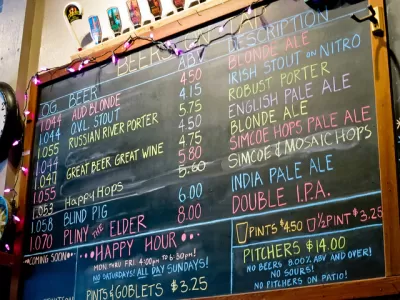 BEERS ON TAP
OG BEER ABV DESCRIPTION
1.044 AUD BLONDE 4.50 BLONDE ALE
1.044 OVL STOUT 4.15 IRISH STOUT ON NITRO
1.055 RUSSIAN RIVER PORTER 5.75 ROBUST PORTER
1.044 4.50 ENGLISH PALE ALE
1.047 GREAT BEER GREAT WINE 4.75 BLONDE ALE
1.055 5.80 SIMCOE HOPS PALE ALE
1.053 HAPPY HOPS 5.60 SIMCOE & MOSAIC HOPS
1.058 BLIND PIG 6.00 INDIA PALE ALE
1.070 PLINY THE ELDER 8.00 DOUBLE I.P.A.
COMING SOON
HAPPY HOUR
MON thru FRI 4:00pm to 6:30pm!
NO SATURDAYS! ALL DAY SUNDAYS!
PINTS & GOBLETS $3.25
PINTS $4.50 ½ PINT $3.25
PITCHERS $14.00
NO BEERS 8.00 ABV AND OVER!
NO SOURS!
NO PITCHERS ON PATIO!